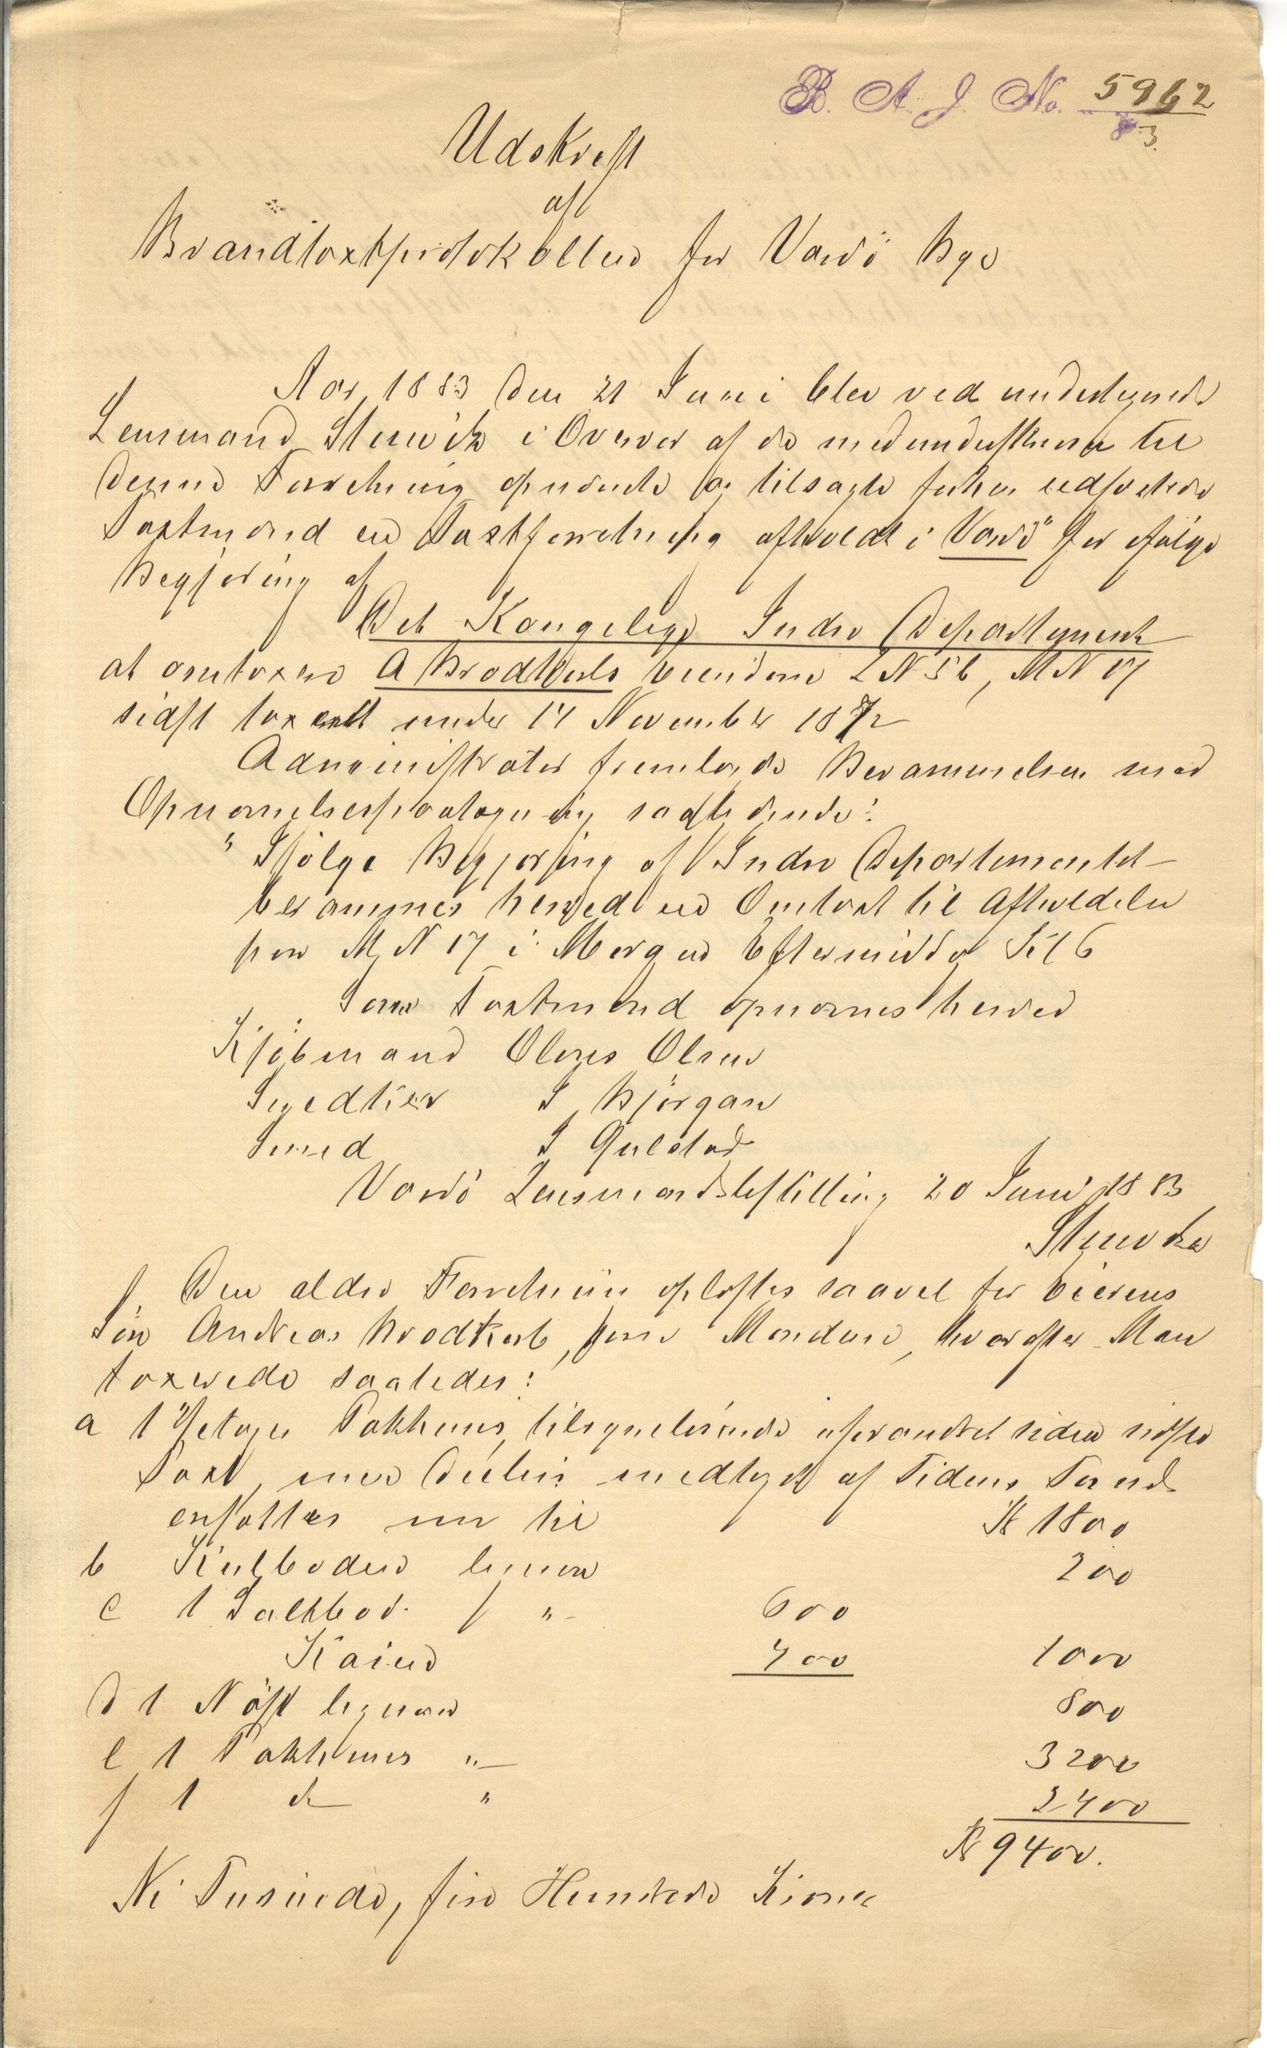 B. A. J. No. 5962
83.
Udskrift
af
Brandtaxtprotokollen for Vardö By
Aar 1883 den 21 Juni blev ved undertegnede
Lensmand i Overvær af de medunderskrevne til
denne Forretning opnævnte og tilsagte
Taxtmænd en Taxtforretning afholdt i Vardö for ifölge
Begjæring af
Det Kongelige Indre Departement
at omtaxere A Brodtkorbs Eiendom LN 56, MN 17
sidst taxeret under 14 November 1872
Administrator fremlagde Berammelsen med
Opnævnelsespaategning saalydende:
" Ifölge Begjæring af Indre Departementet
berammes herved en Omtaxt til Afholdelse
paa MN 17 i Morgen Eftermiddag Kl 6
Som Taxtmænd opnævnes herved
Kjöbmand Olaus Olsen
Snedker I Björgan
Smed I Gulstad
Vardö Lensmandsbestilling 20 Juni 1883
Den ældre Forretning oplæstes saavel for Eierens
Sön Andreas Brodtkorb, som Mændene, hvorefter Man
taxerede saaledes:
a 1 Etages Pakhuus, tilsyneladende uforandret siden sidste
Taxt, men Deelvis medtaget af Tidens Tand
ansættes nu til K 1800
b Kulboden ligesaa 200
c 1 Saltbod " 600
Kaien 400 1000
d 1 Nöst ligesaa 800
e 1 Pakhuus " 3200
f 1 do " 2400
K 9400.
Ni Tusinde, fire Hundrede Kroner